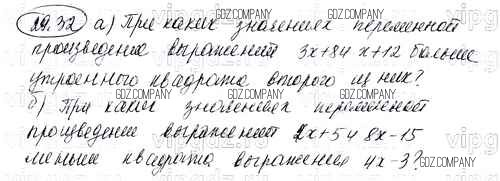 29.32 а) При каких значениях переменной
произведение выражений 3х+8 и х+12 больше
утроенного квадрата второго из них?
б) При каких значениях переменной
произведение выражений 2х+5 и 8х-15
меньше квадрата выражения 4х-3?
GDZ.COMPANY
GDZ.COMPANY
GDZ.COMPANY
GDZ.COMPANY
GDZ.COMPANY
GDZ.COMPANY
GDZ.COMPANY
GDZ.COMPANY